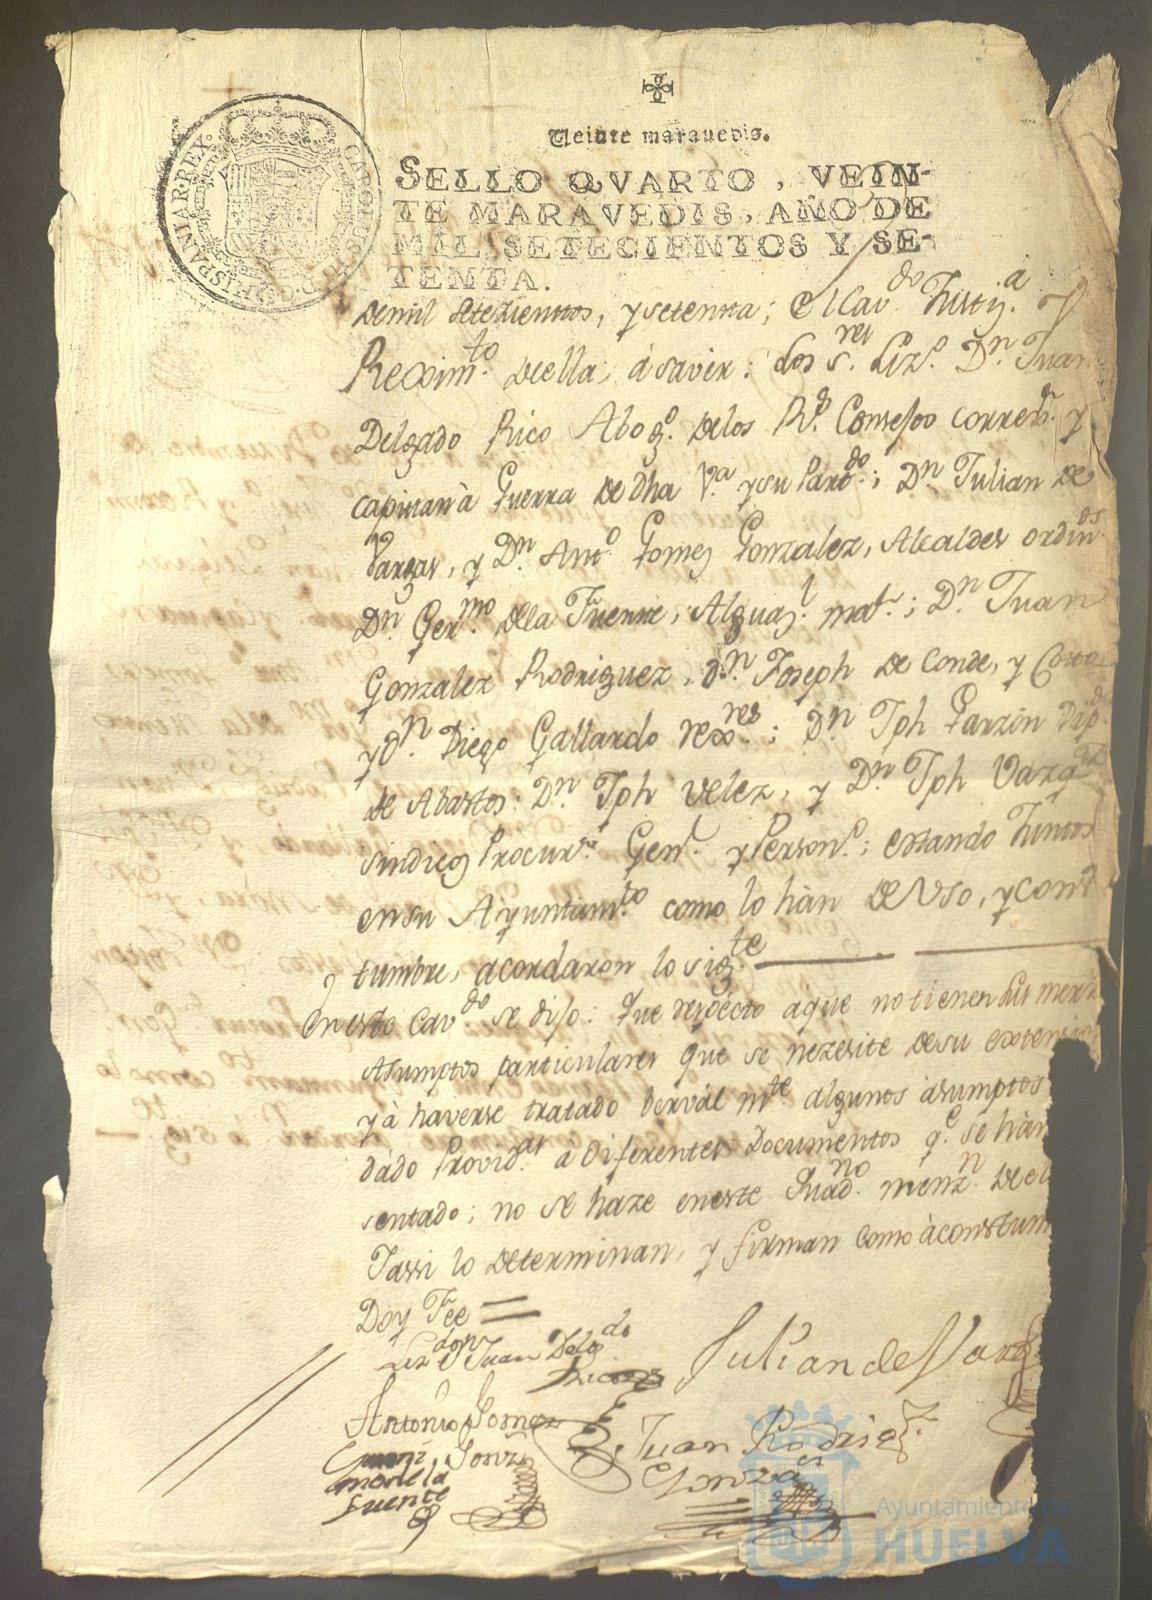 Veinte maravedis.
SELLO QVARTO, VEIN-
TE MARAVEDIS, AÑO DE
MIL SETECIENTOS Y SE-
TENTA.
CAROLUS III D. G. HISPANIAR. REX.
demil setezientos, y setenta; el Cavdo Justiza. y
Reximto. deella, á saver: los Sres. Lizdo. Dn. Juan
Delgado Rico Abogdo. delos Rs. Consejos corregr. y
capitan à Guerra de dha Va. y su Partdo.; Dn. Julian de
Vargas, y Dn. Anto. Gomez Gonzalez, Alcaldes ordinos
Dn. Germo. dela Fuente, Alguazl. mar.; Dn. Juan
Gonzalez Rodriguez, dn. Joseph de Conde, y Coto
y dn. Diego Gallardo rexres.; Dn. Jph Garzón Dipdo
de Abastos; Dn. Jph Velez, y Dn. Jph Vazqez
sindicos Procurrs. Genl. y Persono.; estando Juntos
ensu Ayuntamto. como lo hàn de Uso, y cons
tumbre, acordaron lo sigte
Eneste Cavdo. se dijo: Que respecto aque no tienen
Asumptos particulares que se nezesite desu extension
y à haverse tratado bervál mte algunos asumptos
dádo Providas. à Diferentes Documentos qe. se hàn
sentado; no se haze eneste Quadno. menzn. de el
Yassi lo determinan, y firman como àcostum
Doy Fee =
Lizdo dn Juan Delgdo
Rico
Julian de Varg
Antonio Gomez
Gonzz
Juan Rodrig
Gonzs
Germ
mo de la
fuente
Ayuntamiento de
HUELVA